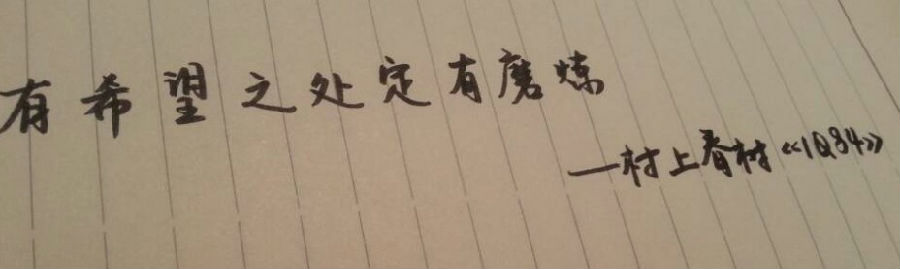 有希望之处定有磨炼
—村上春树《1Q84》